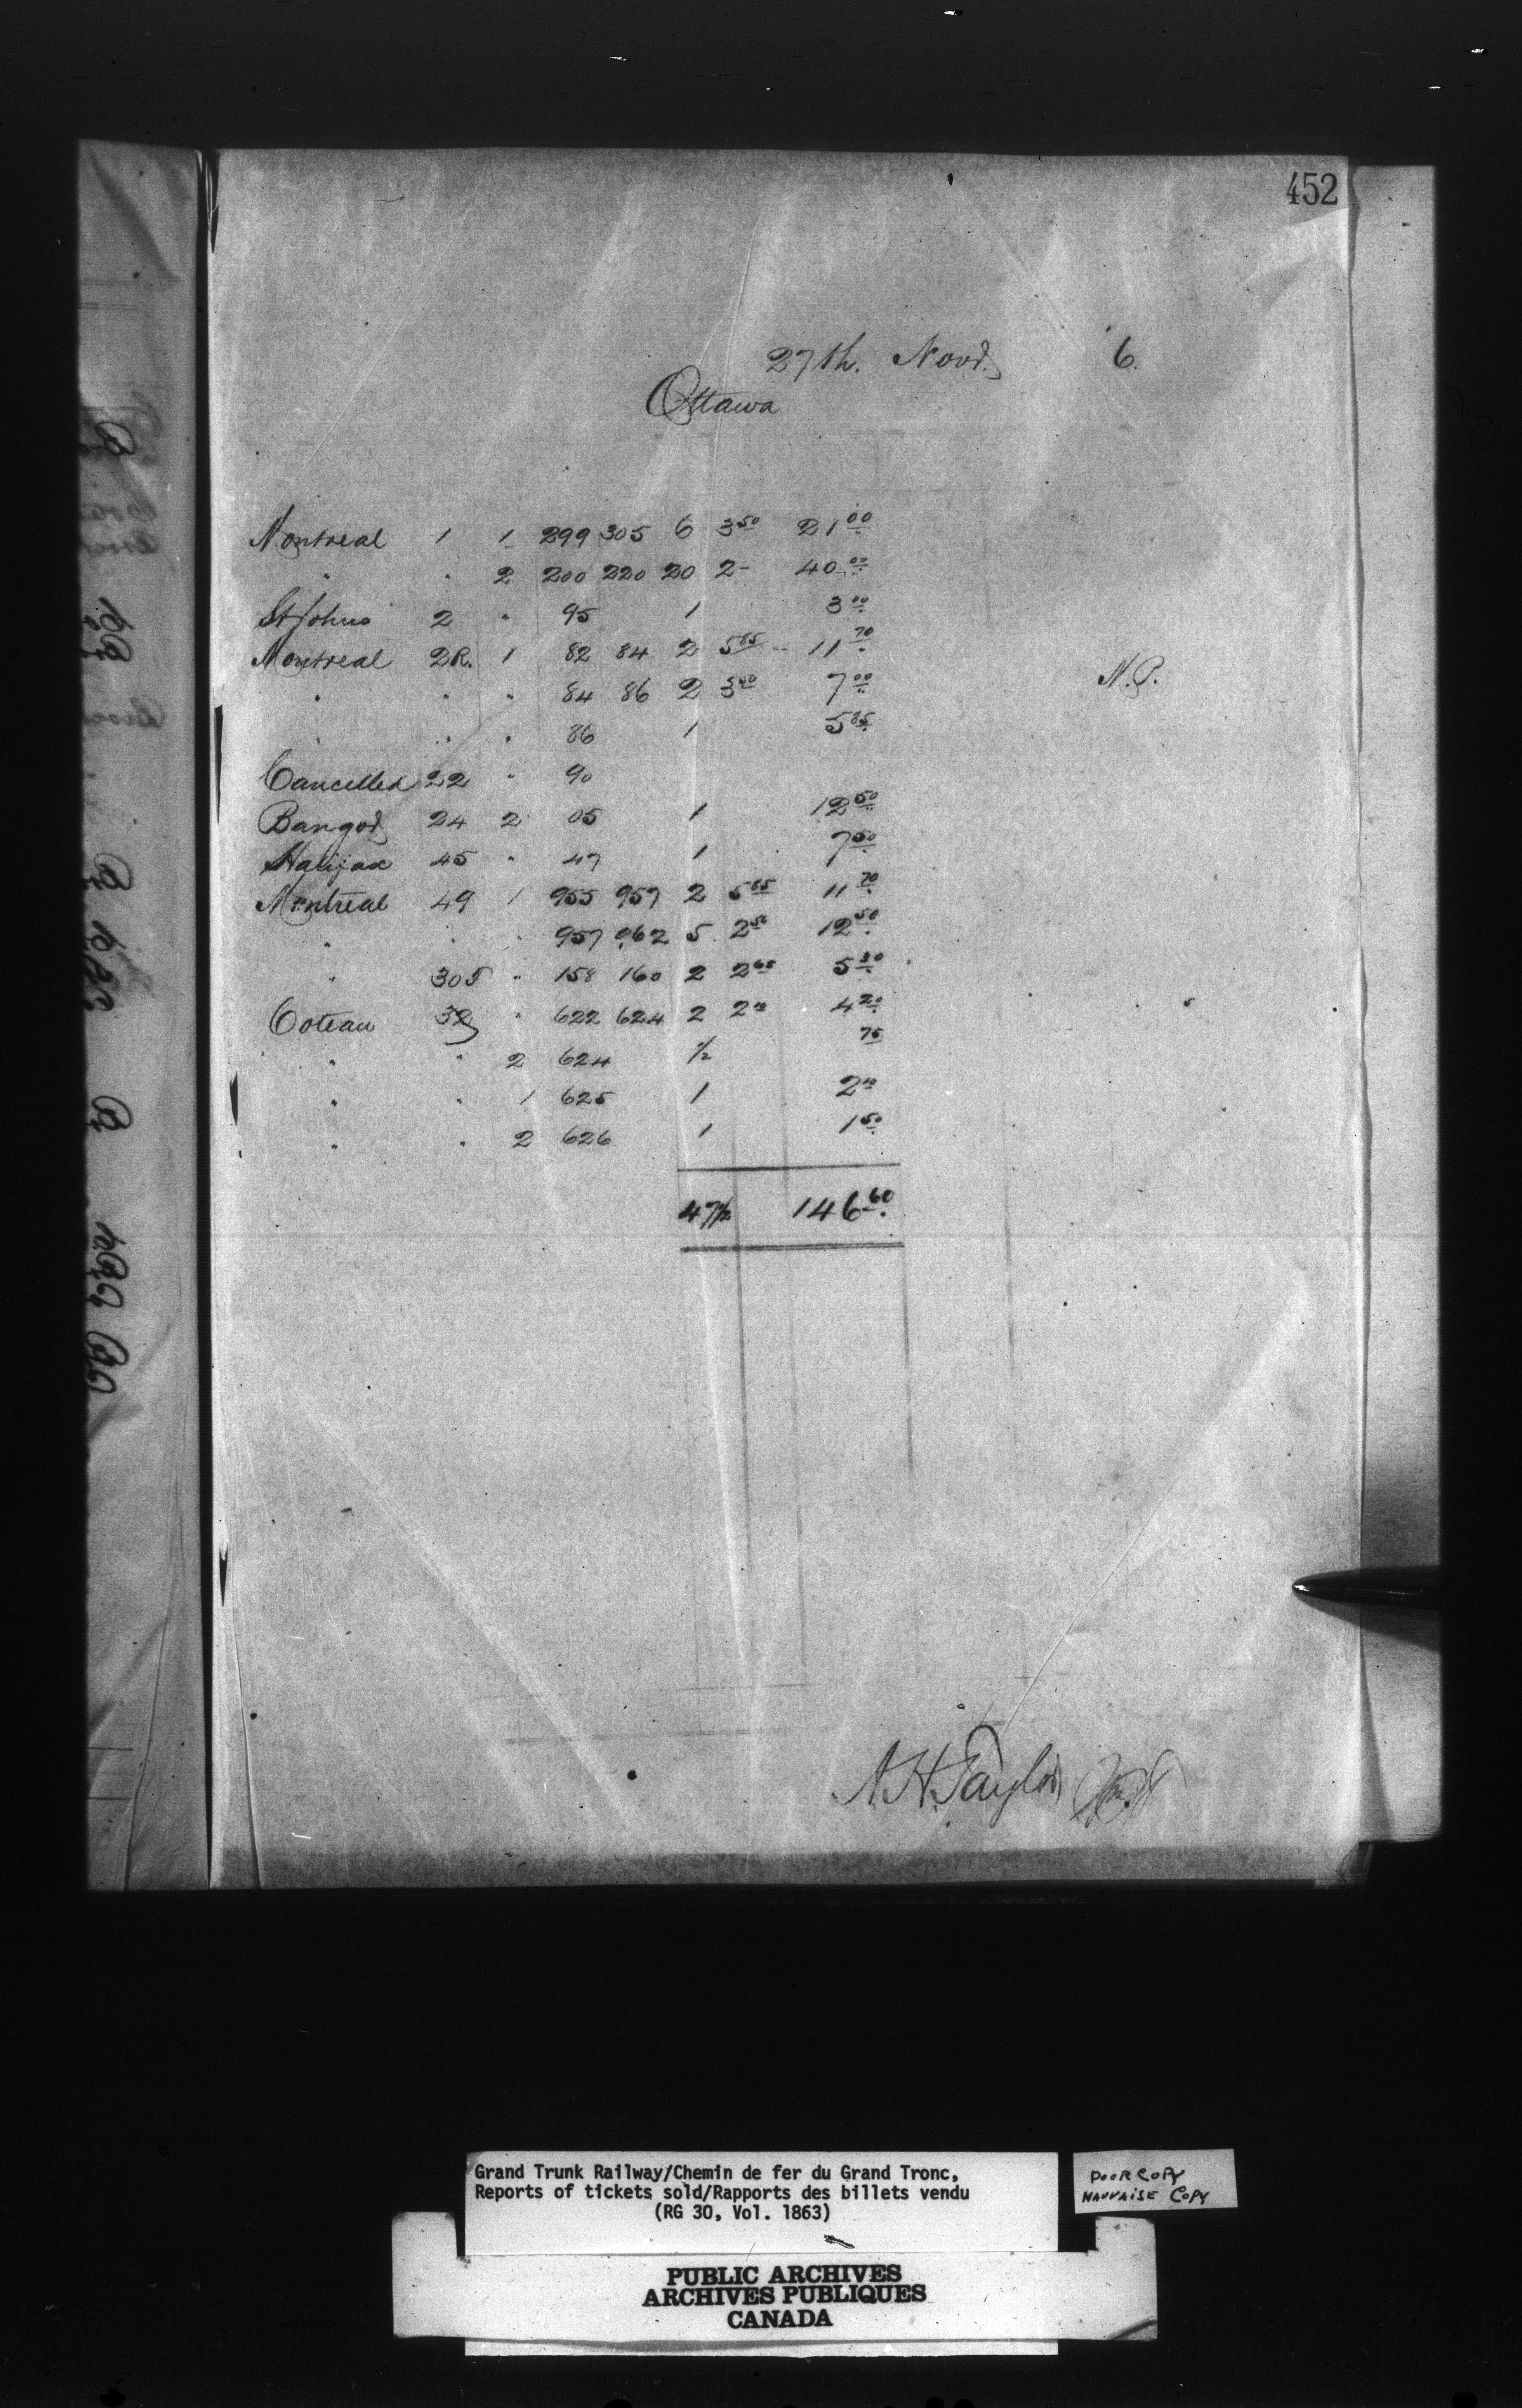 452
27th. Novr. 6.
Ottawa
Montreal 1 1 299 305 6 3.50 21.00
" " 2 200 220 20 2- 40.00
St Johns 2 " 95 1 3.00
Montreal 2R. 1 82 84 2 5.85 11.70
" " " 84 86 2 3.50 7.00 N.P.
" " " 86 1 5.85
Cancelled 22 " 90
Bangor 24 2 05 1 12.50
Halifax 45 " 47 1 7.50
Montreal 49 1 955 957 2 5.85 11.70
" " " 957 962 5 2.50 12.50
" 305 " 158 160 2 2.65 5.30
Coteau 32 " 622 624 2 2.10 4.20
" " 2 624 1/2 75
" " 1 625 1 2.10
" " 2 626 1 1.50
47 1/2 146.60
A.H. Taylor
Grand Trunk Railway/Chemin de fer du Grand Tronc,
Reports of tickets sold/Rapports des billets vendu
(RG 30, Vol. 1863)
POOR COPY
MAUVAISE COPY
PUBLIC ARCHIVES
ARCHIVES PUBLIQUES
CANADA